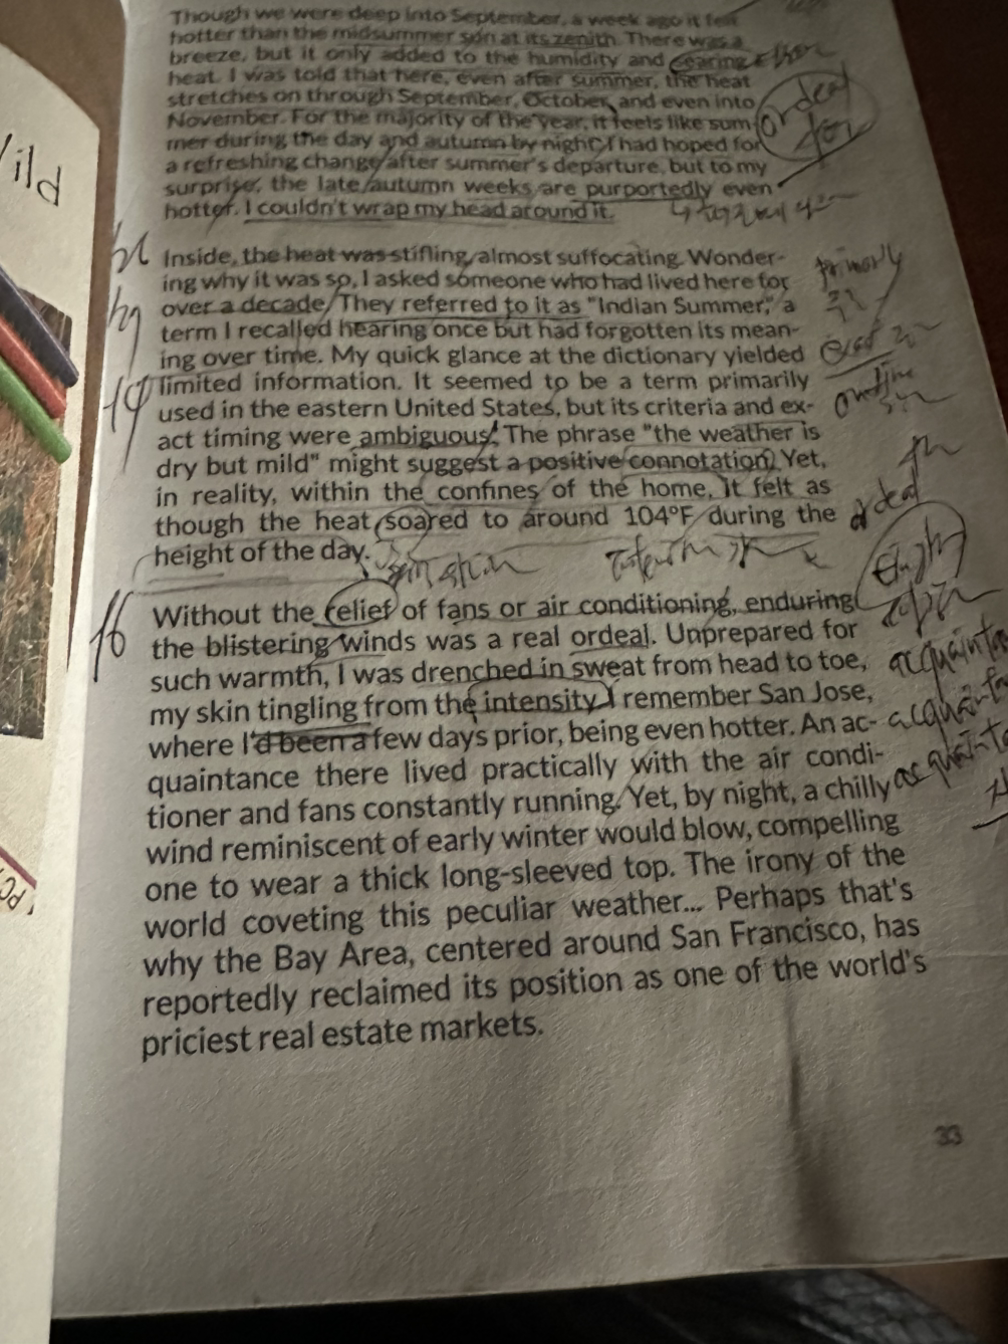 Though we were deep into September, a week ago it felt
hotter than the midsummer sun at its zenith. There was a
breeze, but it only added to the humidity and searing
heat. I was told that here, even after summer, the heat
stretches on through September, October, and even into
November. For the majority of the year, it feels like sum-
mer during the day and autumn by night. I had hoped for
a refreshing change after summer's departure, but to my
surprise, the late autumn weeks are purportedly even
hotter. I couldn't wrap my head around it.
Inside, the heat was stifling, almost suffocating. Wonder-
ing why it was so, I asked someone who had lived here for
over a decade. They referred to it as "Indian Summer," a
term I recalled hearing once but had forgotten its mean-
ing over time. My quick glance at the dictionary yielded
limited information. It seemed to be a term primarily
used in the eastern United States, but its criteria and ex-
act timing were ambiguous. The phrase "the weather is
dry but mild" might suggest a positive connotation. Yet,
in reality, within the confines of the home, it felt as
though the heat soared to around 104°F during the
height of the day.
Without the relief of fans or air conditioning, enduring
the blistering winds was a real ordeal. Unprepared for
such warmth, I was drenched in sweat from head to toe,
my skin tingling from the intensity. I remember San Jose,
where I'd been a few days prior, being even hotter. An ac-
quaintance there lived practically with the air condi-
tioner and fans constantly running. Yet, by night, a chilly
wind reminiscent of early winter would blow, compelling
one to wear a thick long-sleeved top. The irony of the
world coveting this peculiar weather... Perhaps that's
why the Bay Area, centered around San Francisco, has
reportedly reclaimed its position as one of the world's
priciest real estate markets.
33
ordeal
primarily
ordeal